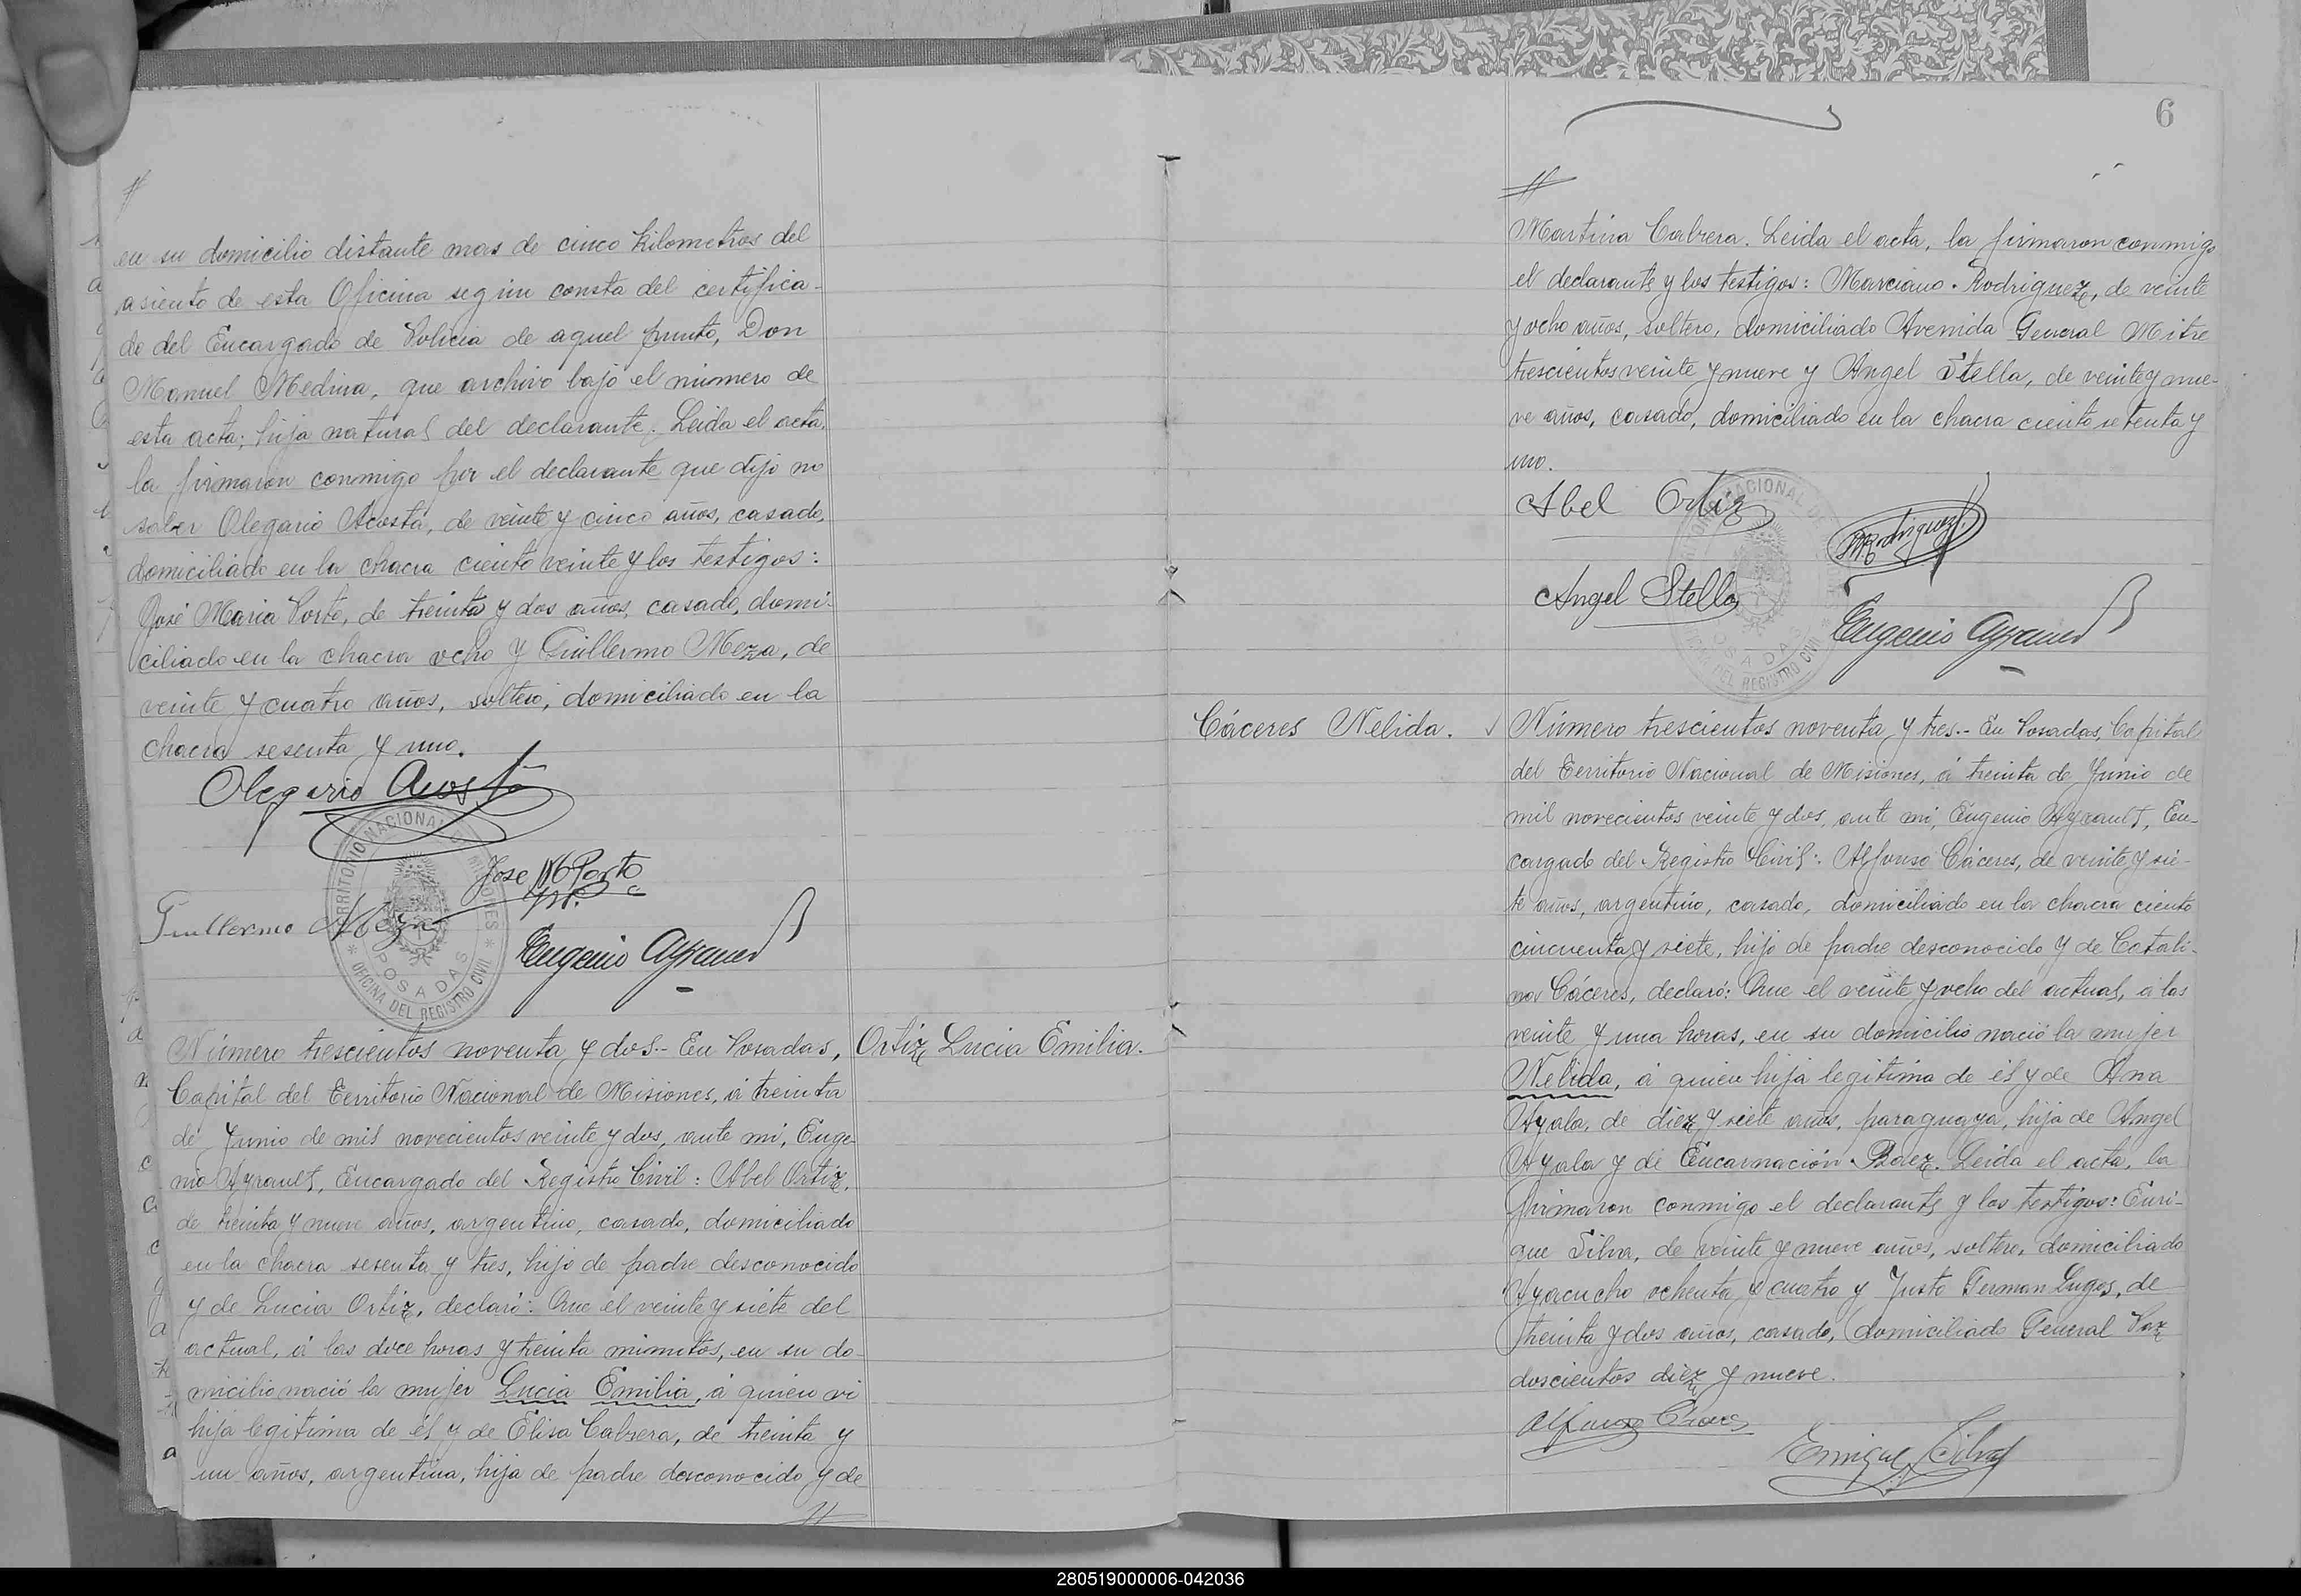 //
en su domicilio distante mas de cinco kilometros del
asiento de esta Oficina segun consta del certifica-
do del Encargado de Policia de aquel punto, Don
Manuel Medina, que archivo bajo el número de
esta acta; hija natural del declarante. Leida el acta,
la firmaron conmigo por el declarante que dijo no
saber Olegario Acosta, de veinte y cinco años, casado,
domiciliado en la chacra ciento veinte y los testigos:
José Maria Porto, de treinta y dos años, casado, domi-
ciliado en la chacra ocho y Guillermo Meza, de
veinte y cuatro años, soltero, domiciliado en la
chacra sesenta y uno.
Olegario Acosta
Jose M Porto
Guillermo Meza
Eugenio Ayrault
TERRITORIO NACIONAL DE MISIONES
POSADAS
* OFICINA DEL REGISTRO CIVIL *
Ortiz Lucia Emilia.
Número trescientos noventa y dos.- En Posadas,
Capital del Territorio Nacional de Misiones, á treinta
de Junio de mil novecientos veinte y dos, ante mi, Euge-
nio Ayrault, Encargado del Registro Civil: Abel Ortiz,
de treinta y nueve años, argentino, casado, domiciliado
en la chacra sesenta y tres, hijo de padre desconocido
y de Lucia Ortiz, declaró: Que el veinte y siete del
actual, á las doce horas y treinta minutos, en su do-
micilio nació la mujer Lucia Emilia, á quien vi
hija legitima de él y de Elisa Cabrera, de treinta y
un años, argentina, hija de padre desconocido y de
//
6
//
Martina Cabrera. Leida el acta, la firmaron conmigo
el declarante y los testigos: Marciano Rodriguez, de veinte
y ocho años, soltero, domiciliado Avenida General Mitre
trescientos veinte y nueve y Angel Stella, de veinte y nue-
ve años, casado, domiciliado en la chacra ciento setenta y
uno.
Abel Ortiz
M Rodriguez
Angel Stella
Eugenio Ayrault
TERRITORIO NACIONAL DE MISIONES
POSADAS
OFICINA DEL REGISTRO CIVIL *
Cáceres Nelida. √
Número trescientos noventa y tres.- En Posadas, Capital
del Territorio Nacional de Misiones, á treinta de Junio de
mil novecientos veinte y dos, ante mi, Eugenio Ayrault, En-
cargado del Registro Civil: Alfonso Cáceres, de veinte y sie-
te años, argentino, casado, domiciliado en la chacra ciento
cincuenta y siete, hijo de padre desconocido y de Catali-
na Cáceres, declaró: Que el veinte y ocho del actual, á las
veinte y una horas, en su domicilio nació la mujer
Nelida, á quien hija legitima de él y de Ana
Ayala, de diez y siete años, paraguaya, hija de Angel
Ayala y de Encarnación Baez. Leida el acta, la
firmaron conmigo el declarante y los testigos: Enri-
que Silva, de veinte y nueve años, soltero, domiciliado
Ayacucho ochenta y cuatro y Justo German Lugos, de
treinta y dos años, casado, domiciliado General Paz
doscientos diez y nueve.
Alfonso Caceres
Enrique Silva
280519000006-042036